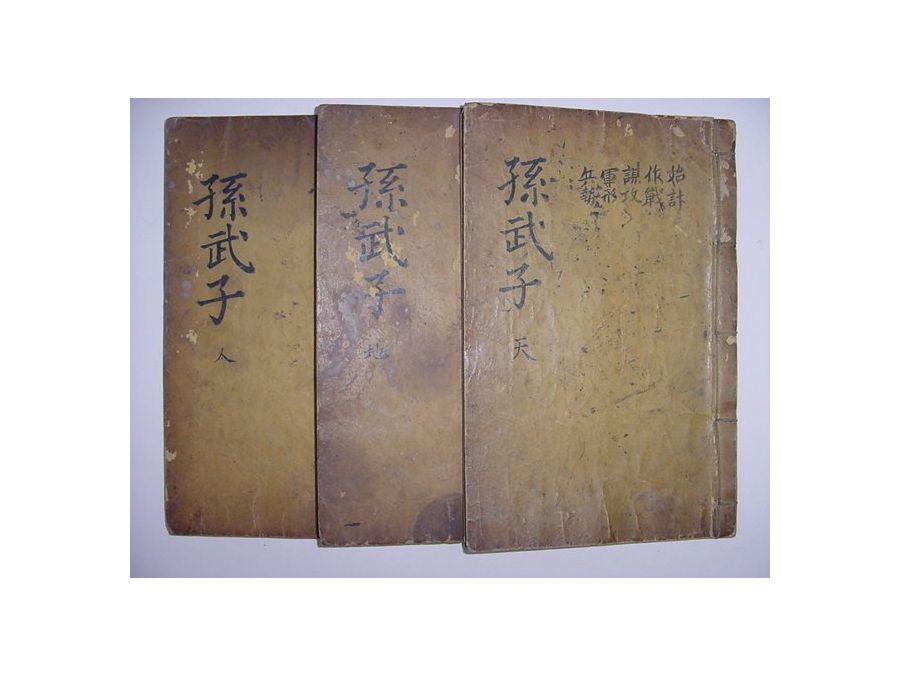 孫武子
天
始計
作戰
謀攻
軍形
兵勢
孫武子
地
孫武子
人